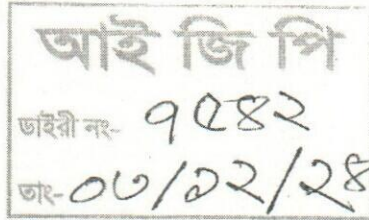 আই জি পি
ডাইরী নং- ৭৫৪২
তাং- ০৩/১২/২৪